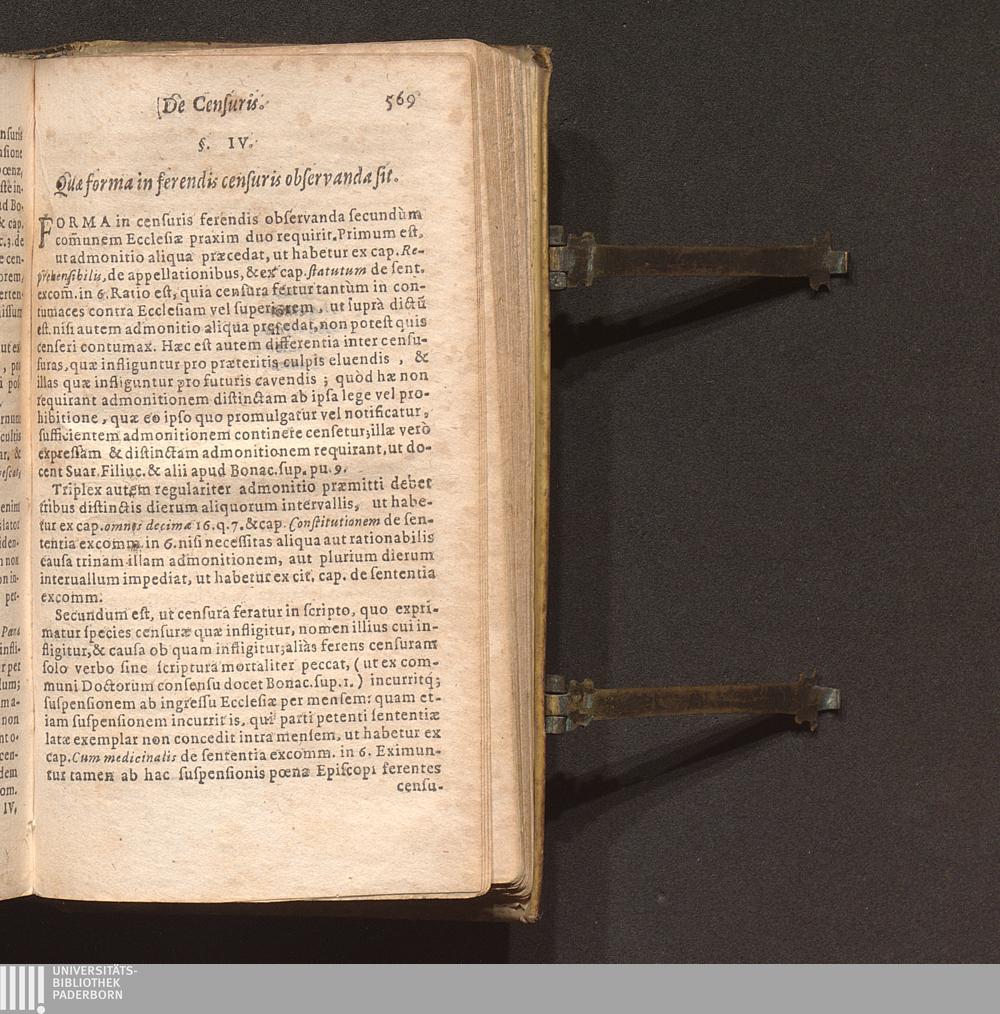 De Censuris. 569
§. IV.
Quæ forma in ferendis censuris observanda sit.
FORMA in censuris ferendis observanda secundùm
com̃unem Ecclesiæ praxim duo requirit. Primum est,
ut admonitio aliqua præcedat, ut habetur ex cap. Re-
prehensibilis, de appellationibus, & ex cap. statutum de sent.
excom. in 6. Ratio est, quia censura fertur tantùm in con-
tumaces contra Ecclesiam vel superiorem, ut suprà dictũ
est. nisi autem admonitio aliqua precedat, non potest quis
censeri contumax. Hæc est autem differentia inter censu-
suras, quæ infliguntur pro præteritis culpis eluendis, &
illas quæ infliguntur pro futuris cavendis; quòd hæ non
requirant admonitionem distinctam ab ipsa lege vel pro-
hibitione, quæ eo ipso quo promulgatur vel notificatur,
sufficientem admonitionem continere censetur; illæ verò
expressam & distinctam admonitionem requirant, ut do-
cent Suar. Filiuc. & alii apud Bonac. sup. pu. 9.
Triplex autem regulariter admonitio præmitti debet
tribus distinctis dierum aliquorum intervallis, ut habe-
tur ex cap. omnes decima 16. q. 7. & cap. Constitutionem de sen-
tentia excomm. in 6. nisi necessitas aliqua aut rationabilis
causa trinam illam admonitionem, aut plurium dierum
interuallum impediat, ut habetur ex cit. cap. de sententia
excomm.
Secundum est, ut censura feratur in scripto, quo expri-
matur species censuræ quæ infligitur, nomen illius cui in-
fligitur, & causa ob quam infligitur; aliàs ferens censuram
solo verbo sine scriptura mortaliter peccat, (ut ex com-
muni Doctorum consensu docet Bonac. sup. 1.) incurritq́;
suspensionem ab ingressu Ecclesiæ per mensem: quam et-
iam suspensionem incurrit is, qui parti petenti sententiæ
latæ exemplar non concedit intra mensem, ut habetur ex
cap. Cum medicinalis de sententia excomm. in 6. Eximun-
tur tamen ab hac suspensionis pœna Episcopi ferentes
censu-
UNIVERSITÄTS-
BIBLIOTHEK
PADERBORN